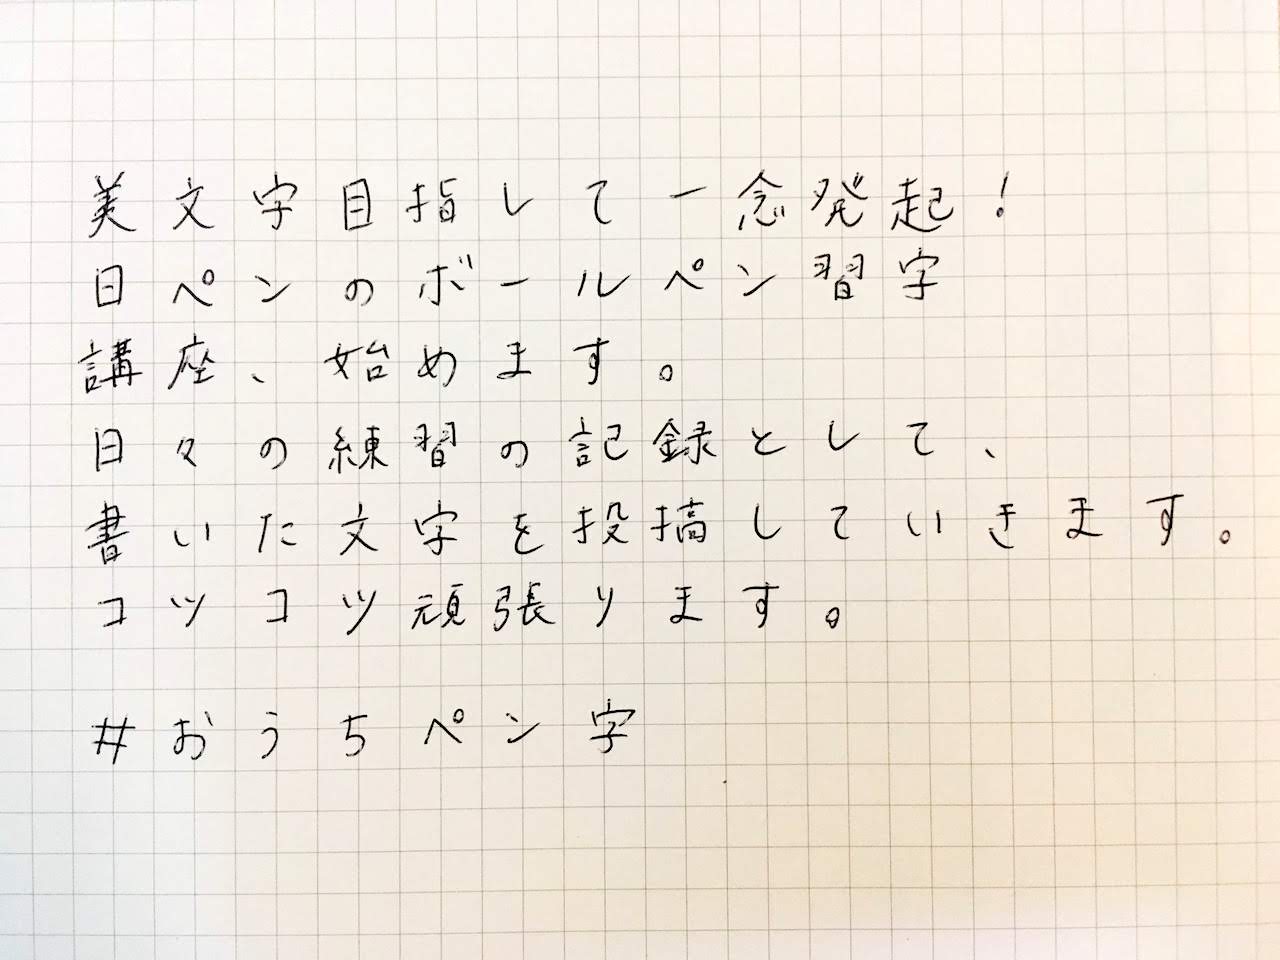 美文字目指して一念発起!
日ペンのボールペン習字
講座、始めます。
日々の練習の記録として、
書いた文字を投稿していきます。
コツコツ頑張ります。
#おうちペン字